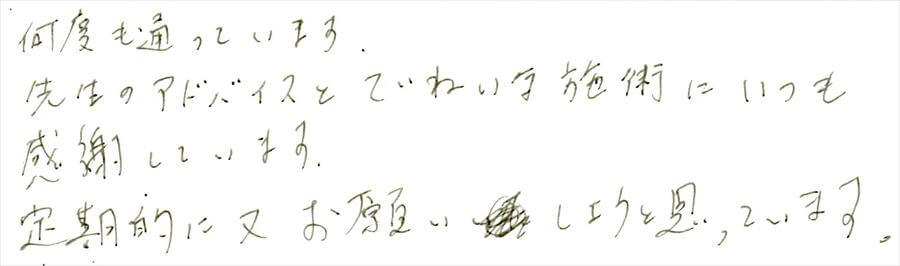 何度も通っています.
先生のアドバイスとていねいな施術にいつも
感謝しています.
定期的に又お願いしようと思っています。